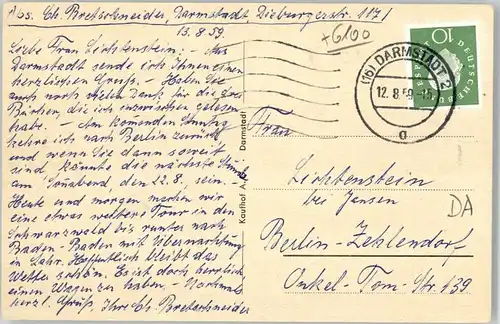 Abs. Ch. Bretschneider, Darmstadt, Dieburgerstr. 117/
13.8.59
Liebe Frau Lichtenstein: - Aus
Darmstadt sende ich Ihnen einen
herzlichen Gruß. - Haben Sie
auch noch vielen Dank für die
Bücher, die ich inzwischen gelesen
habe. - Am kommenden Sonntag
kehre ich nach Berlin zurück
und wenn Sie dann soweit
sind, könnte die nächste Stunde
am Sonnabend, den 22.8., sein. -
Heute und morgen machen wir
eine etwas weitere Tour in den
Schwarzwald bis runter nach
Baden-Baden mit Übernachtung
in Lahr. Hoffentlich bleibt das
Wetter schön. Es ist doch herrlich,
einen Wagen zu haben. - Nochmals
herzl. Gruß, Ihre Ch. Bretschneider
+6100
(16) DARMSTADT 2
12.8.59
a
10
DEUTSCHE
Kaufhof A.G. Darmstadt
Frau
Lichtenstein
bei Jansen
Berlin-Zehlendorf
Onkel-Tom-Str. 139
DA